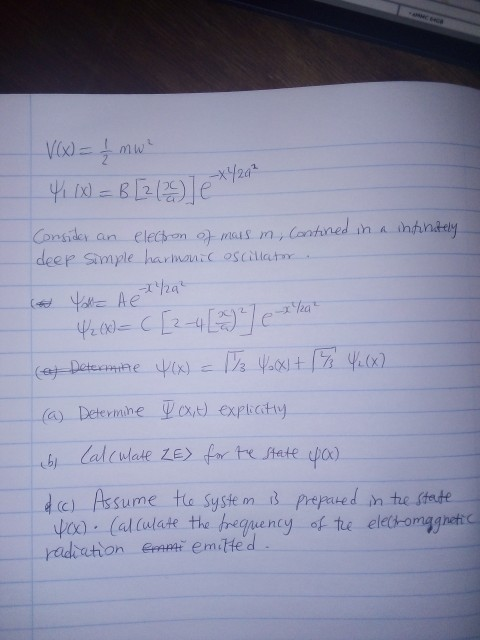 V(x) = 1/2 mw²
Ψ₁(x) = B[2(x/a)] e^(-x²/2a²)
Consider an electron of mass m, confined in a infinitely
deep simple harmonic oscillator.
= A e^(-x²/2a²)
Ψ₂(x) = C [2-4[x/a]²] e^(-x²/2a²)
(a) Determine Ψ(x) = √1/3 Ψ₀(x) +
(a) Determine Ψ(x,t) explicitly
(b) Calculate <E> for the state ψ(x)
(c) Assume the system is prepared in the state
ψ(x). Calculate the frequency of the electromagnetic
radiation emmi emitted.